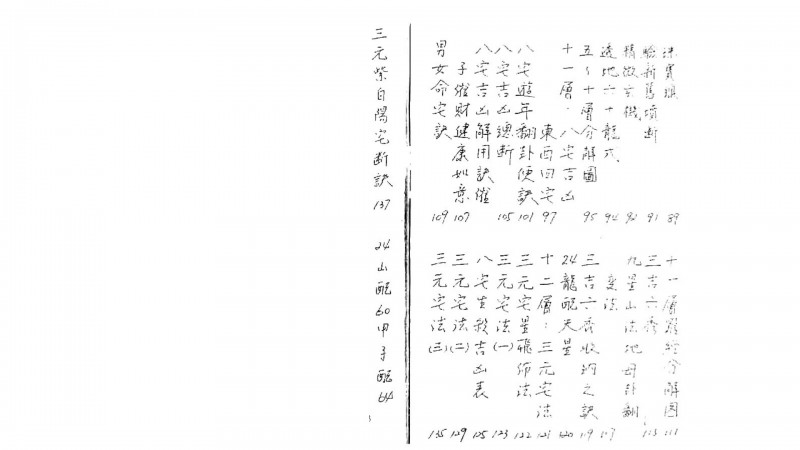 珠寶賦 89
驗新舊墳斷 91
精微玄機 92
透地六十龍式 94
五~十層分解圖 95
十一層:八宅吉凶
東西四宅 97
八宅遊年翻卦便訣 101
八宅吉凶總斷 105
八宅吉凶解用訣催
子催財健康如意 107
男女命宅訣 109
十一層羅經分解圖 111
三吉六秀 113
九星山法地母卦翻
變法 117
三吉六秀收納之訣 119
24龍配天星 120
十二層:三元宅法 121
三元宅星飛佈法 122
三元宅法(一) 123
八宅生殺吉凶表 125
三元宅法(二) 129
三元宅法(三) 135
三元紫白陽宅斷訣 137
24山配60甲子配64